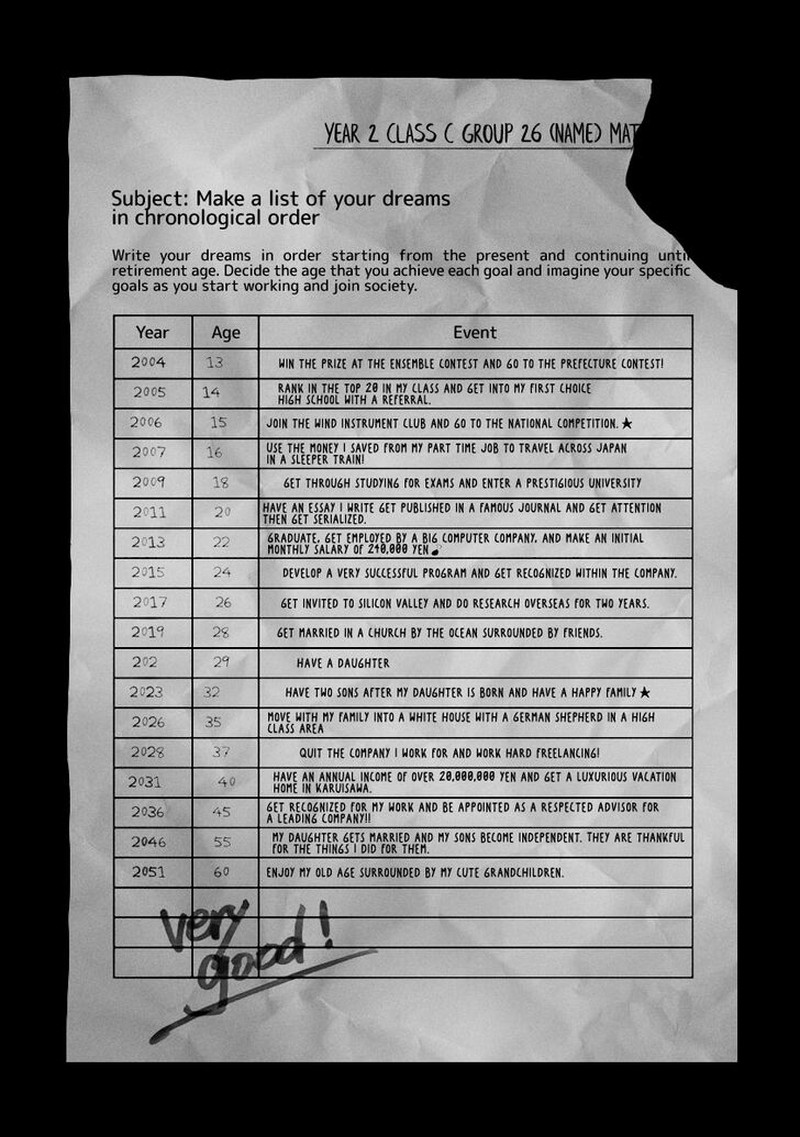 YEAR 2 CLASS C GROUP 26 (NAME) MAT
Subject: Make a list of your dreams
in chronological order
Write your dreams in order starting from the present and continuing until
retirement age. Decide the age that you achieve each goal and imagine your specific
goals as you start working and join society.
Year Age Event
2004 13 WIN THE PRIZE AT THE ENSEMBLE CONTEST AND GO TO THE PREFECTURE CONTEST!
2005 14 RANK IN THE TOP 20 IN MY CLASS AND GET INTO MY FIRST CHOICE
HIGH SCHOOL WITH A REFERRAL.
2006 15 JOIN THE WIND INSTRUMENT CLUB AND GO TO THE NATIONAL COMPETITION.★
2007 16 USE THE MONEY I SAVED FROM MY PART TIME JOB TO TRAVEL ACROSS JAPAN
IN A SLEEPER TRAIN!
2009 18 GET THROUGH STUDYING FOR EXAMS AND ENTER A PRESTIGIOUS UNIVERSITY
2011 20 HAVE AN ESSAY I WRITE GET PUBLISHED IN A FAMOUS JOURNAL AND GET ATTENTION
THEN GET SERIALIZED.
2013 22 GRADUATE, GET EMPLOYED BY A BIG COMPUTER COMPANY, AND MAKE AN INITIAL
MONTHLY SALARY OF 240,000 YEN
2015 24 DEVELOP A VERY SUCCESSFUL PROGRAM AND GET RECOGNIZED WITHIN THE COMPANY.
2017 26 GET INVITED TO SILICON VALLEY AND DO RESEARCH OVERSEAS FOR TWO YEARS.
2019 28 GET MARRIED IN A CHURCH BY THE OCEAN SURROUNDED BY FRIENDS.
202 29 HAVE A DAUGHTER
2023 32 HAVE TWO SONS AFTER MY DAUGHTER IS BORN AND HAVE A HAPPY FAMILY★
2026 35 MOVE WITH MY FAMILY INTO A WHITE HOUSE WITH A GERMAN SHEPHERD IN A HIGH
CLASS AREA
2028 37 QUIT THE COMPANY I WORK FOR AND WORK HARD FREELANCING!
2031 40 HAVE AN ANNUAL INCOME OF OVER 20,000,000 YEN AND GET A LUXURIOUS VACATION
HOME IN KARUISAWA.
2036 45 GET RECOGNIZED FOR MY WORK AND BE APPOINTED AS A RESPECTED ADVISOR FOR
A LEADING COMPANY!!
2046 55 MY DAUGHTER GETS MARRIED AND MY SONS BECOME INDEPENDENT. THEY ARE THANKFUL
FOR THE THINGS I DID FOR THEM.
2051 60 ENJOY MY OLD AGE SURROUNDED BY MY CUTE GRANDCHILDREN.
very
good!